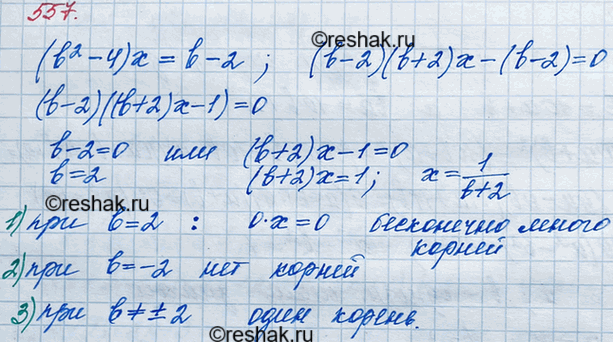 557.
©reshak.ru
(b²-4)x = b-2 ; (b-2)(b+2)x-(b-2)=0
(b-2)((b+2)x-1)=0
b-2=0 или (b+2)x-1=0
b=2 (b+2)x=1; x=1/(b+2)
©reshak.ru
1) при b=2 : 0·x=0 бесконечно много
корней
2) при b=-2 нет корней
3) при b≠±2 один корень.
©reshak.ru